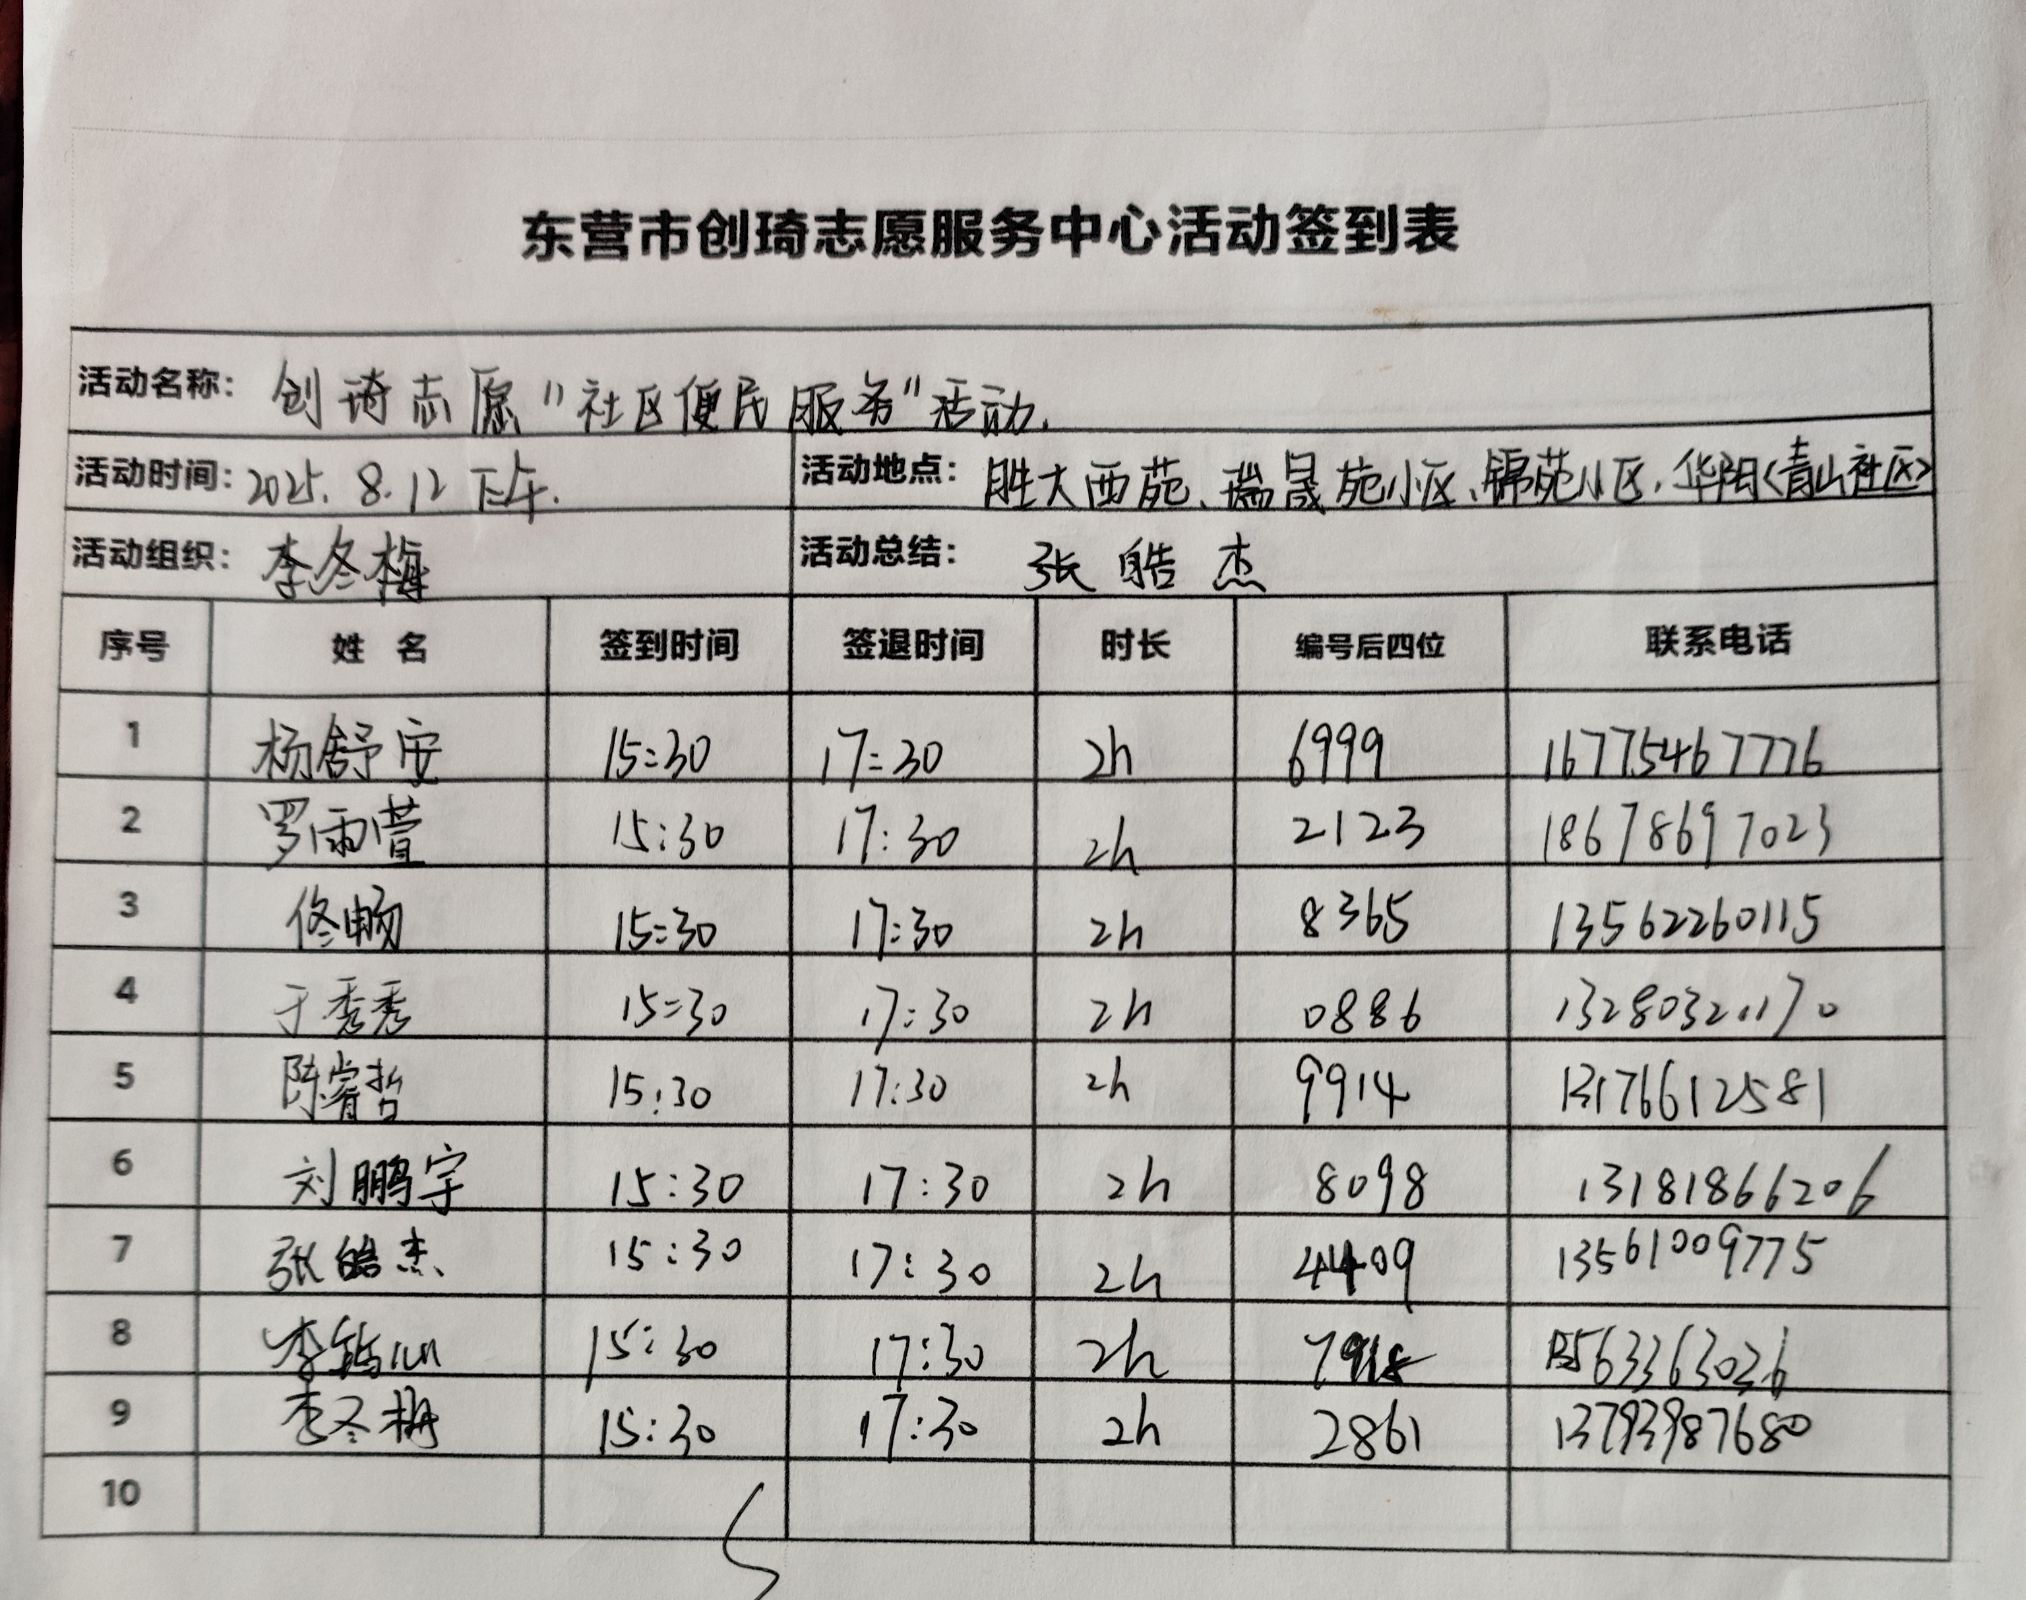 东营市创琦志愿服务中心活动签到表
活动名称: 创琦志愿"社区便民服务"活动.
活动时间: 2025.8.12下午. 活动地点: 胜大西苑、瑞晟苑小区、锦苑小区,华阳<青山社区>
活动组织: 李冬梅 活动总结: 张皓杰
序号 姓名 签到时间 签退时间 时长 编号后四位 联系电话
1 杨舒安 15:30 17:30 2h 6999 16775467776
2 罗雨萱 15:30 17:30 2h 2123 18678697023
3 佟畅 15:30 17:30 2h 8365 13562260115
4 于秀秀 15:30 17:30 2h 0886 13280321170
5 陈睿哲 15:30 17:30 2h 9914 13176612581
6 刘鹏宇 15:30 17:30 2h 8098 13181866206
7 张皓杰 15:30 17:30 2h 4409 13561009775
8 李 15:30 17:30 2h 13563363036
9 李冬梅 15:30 17:30 2h 2861 13793987680
10